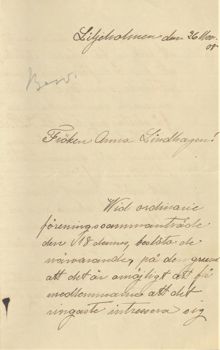 Liljeholmen den 26 Nov.
08
Besv.
Fröken Anna Lindhagen!
Wid ordinarie
föreningssammanträde
den 18 dennes, beslöto de
närvarande, på den grund
att det är omöjligt att få
medlemmarna att det
ringaste intressera sig